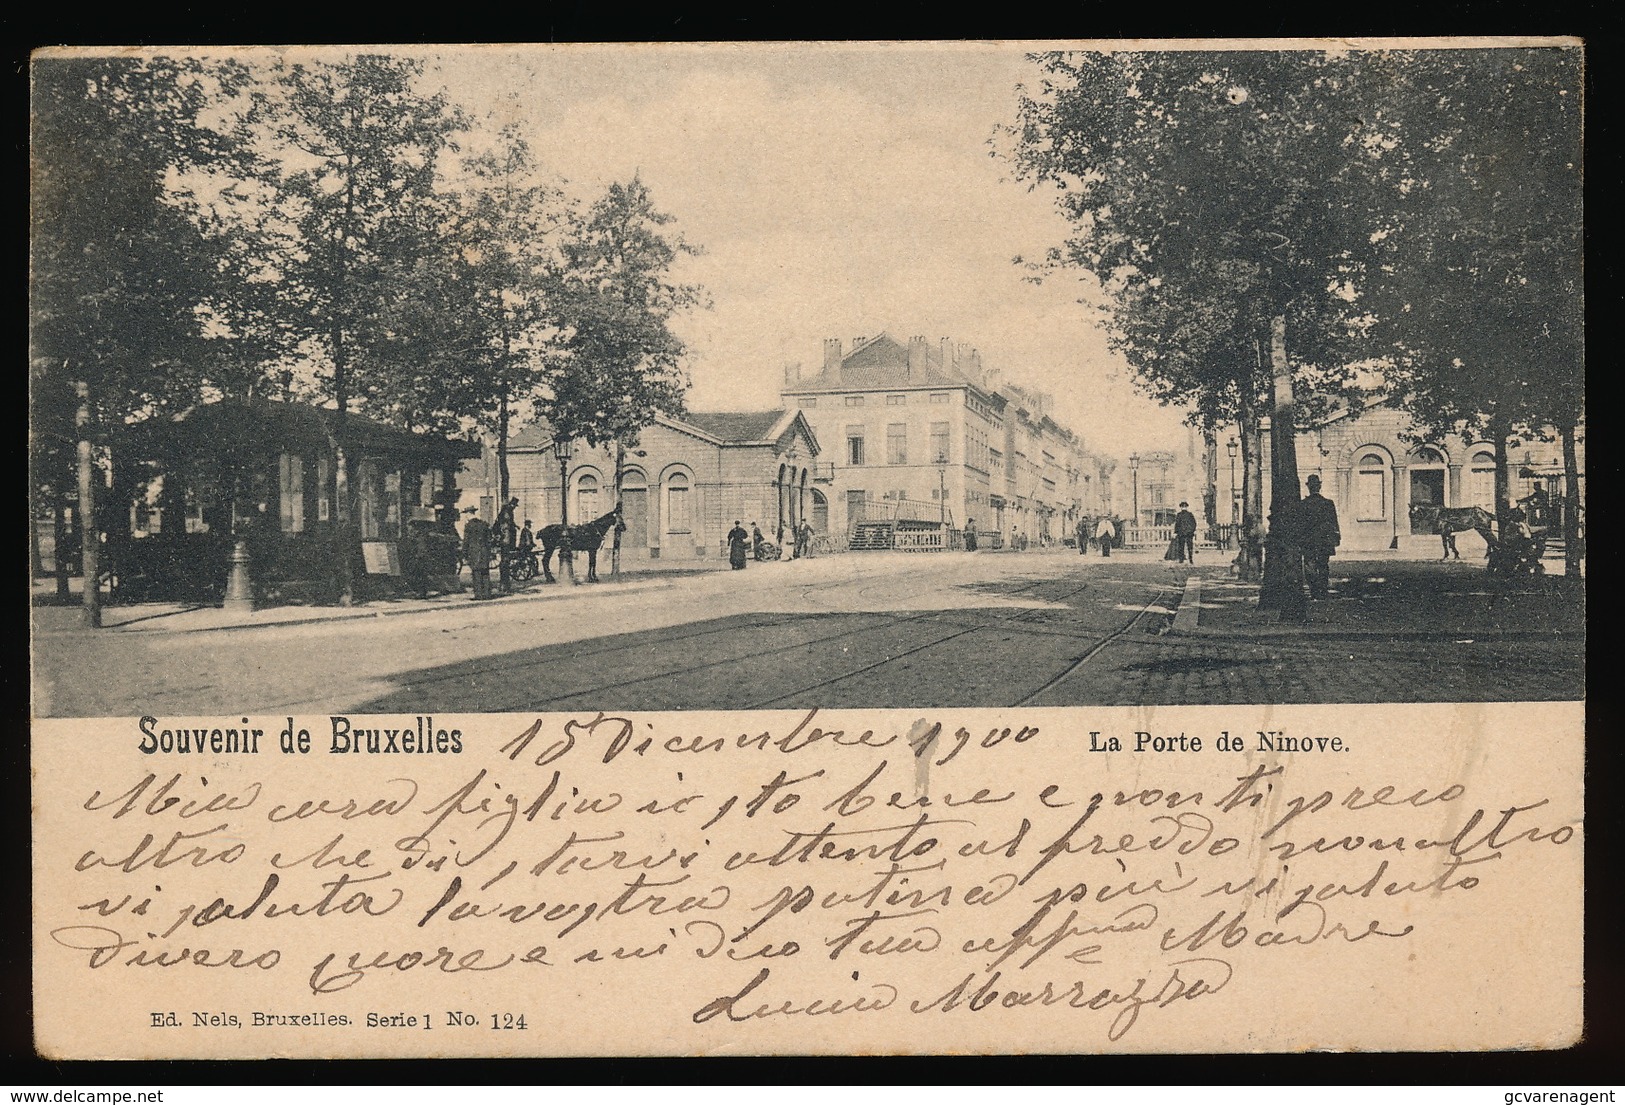 Souvenir de Bruxelles 15 Dicembre 1900 La Porte de Ninove.
Mia cara figlia io sto bene e non ti preco
altro che di starvi attento al freddo non altro
vi saluta la vostra più vi saluto
di vero cuore e mi dico tua affma Madre
Lucia Marrazzo
Ed. Nels, Bruxelles. Serie 1 No. 124
delcampe.net
gcvarenagent